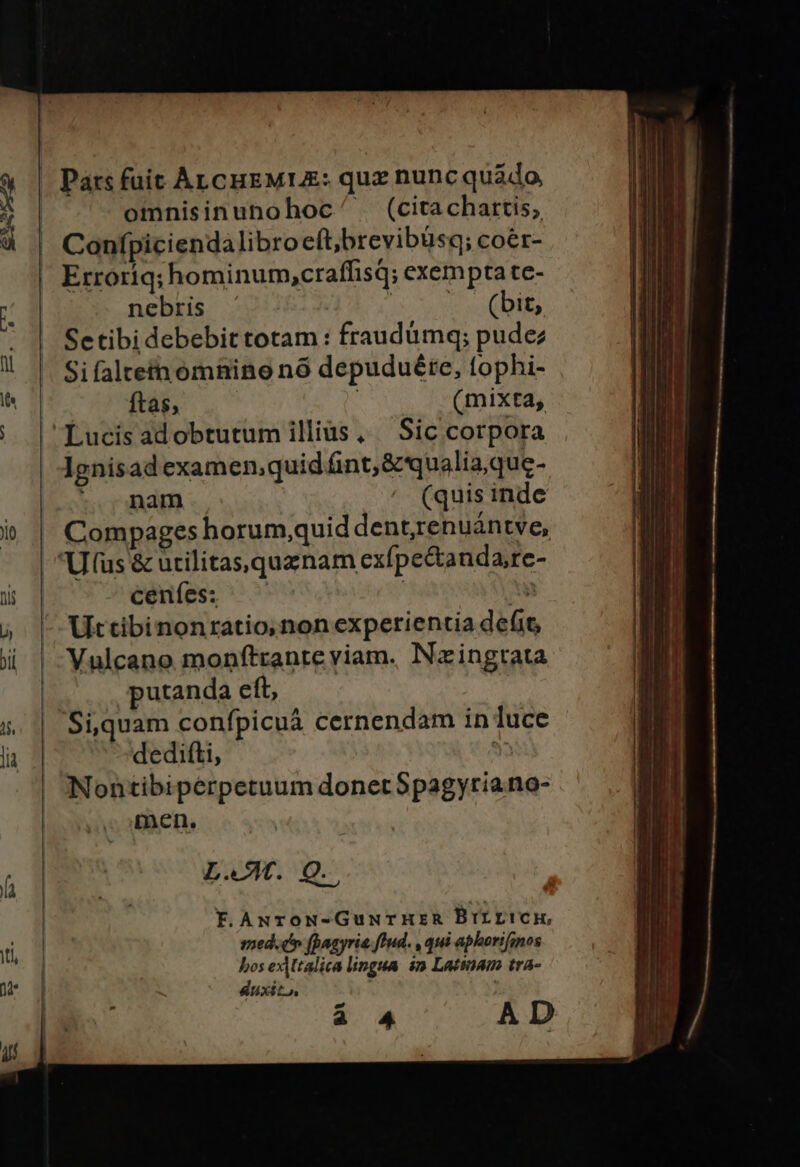 Pars fuit ALCHEMIÆ: quæ nunc quãdo,
omnis in uno hoc (cita chartis,
Conſpicienda libro eſt, brevibúsq; coër-
Erroriq; hominum, craſſisq́; exempta te-
nebris (bit,
Se tibi debebit totam: fraudúmq; pudeƷ
Si ſaltem omnino nõ depuduére, ſophi-
ſtas, (mixta,
Lucis ad obtutum illius, Sic corpora
Ignis ad examen, quid ſint, & qualia, quę-
nam (quis inde
Compages horum, quid dent, renuántve,
Uſus & utilitas, quænam exſpectanda, re-
cenſes:
Ut tibi non ratio, non experientia deſit,
Vulcano monſtrante viam. Næ ingrata
putanda eſt,
Si, quam conſpicuâ cernendam in luce
dediſti,
Non tibi perpetuum donet Spagyria no-
men.
L. M. Q.
F. ANTON-GUNTHER BILLICH,
med. & ſpagyriæ ſtud., qui aphoriſmos
hos ex Italica lingua in Latinam tra-
duxit.
ã 4 AD